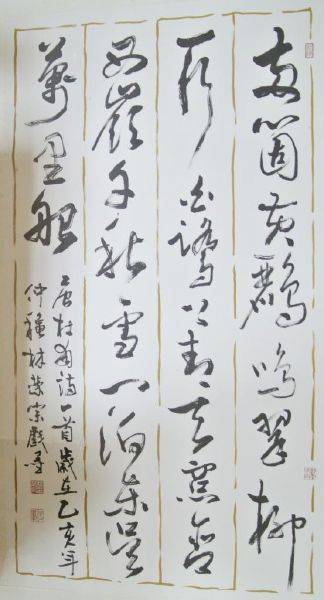 兩箇黃鸝鳴翠柳
一行白鷺上青天窗含
西嶺千秋雪門泊東吳
萬里船
唐杜甫詩一首歲在乙亥年
仲林榮宗戲